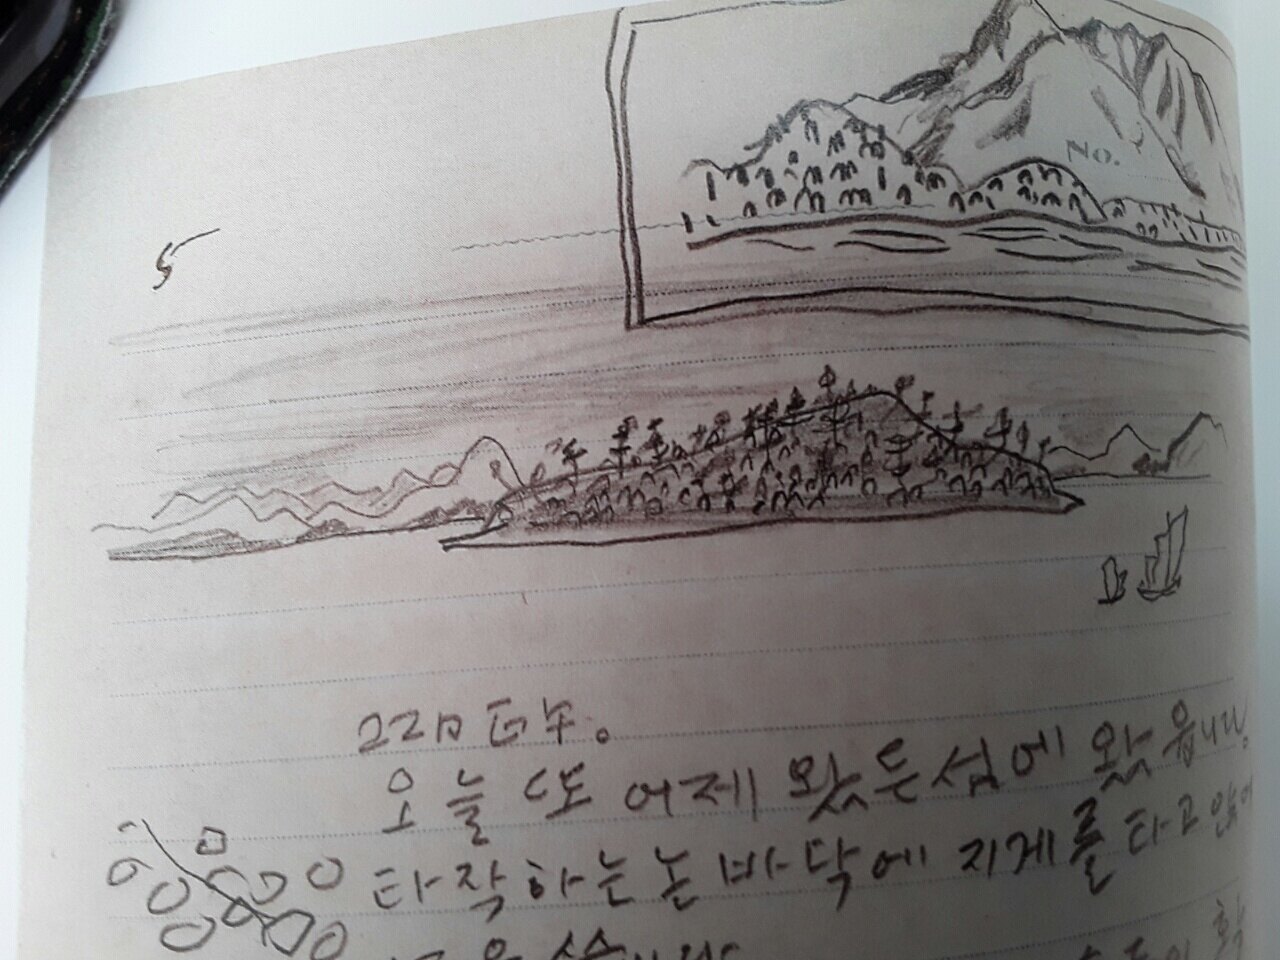 No.
22日 正午。
오늘 또 어제 왔든섬에 왔읍니다.
타작하는 논바닥에 지게를 타고